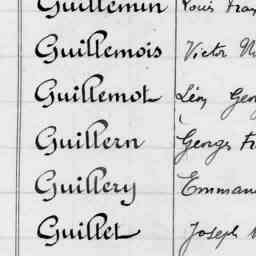 Guillemin Louis
Guillemois Victor
Guillemot Léon
Guillern Georges
Guillery
Guillet Joseph